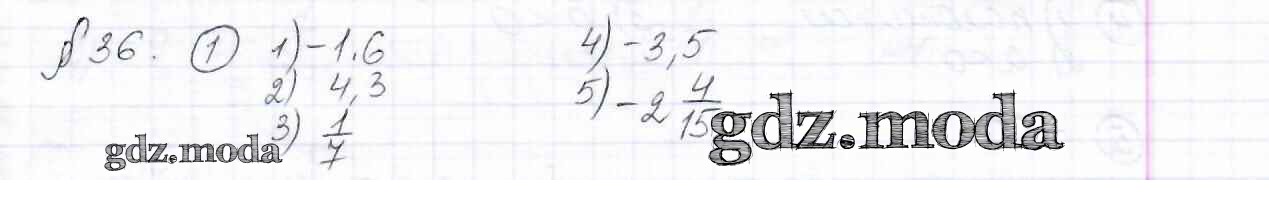 § 36. ① 1) -1.6
2) 4,3
3) 1/7
4) -3,5
5) -2 4/15
gdz.moda
gdz.moda